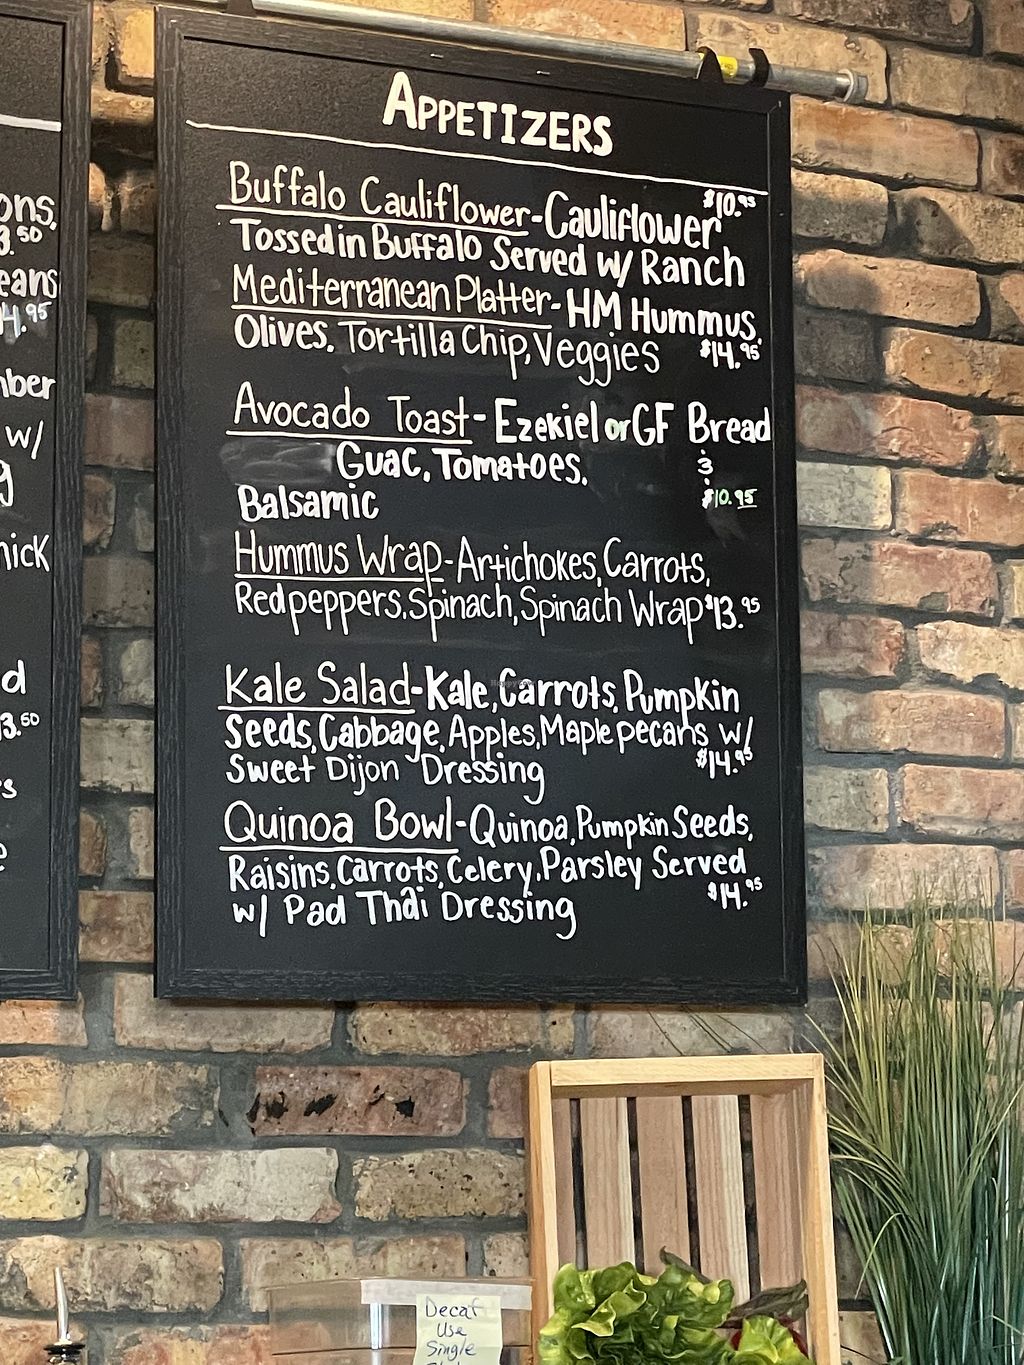 APPETIZERS
Buffalo Cauliflower-Cauliflower $10.95
Tossed in Buffalo Served w/ Ranch
Mediterranean Platter-HM Hummus,
Olives, Tortilla Chip, Veggies $14.95
Avocado Toast-Ezekiel or GF Bread
Guac, Tomatoes, &
Balsamic $10.95
Hummus Wrap-Artichokes, Carrots,
Red peppers, Spinach, Spinach Wrap $13.95
Kale Salad-Kale, Carrots, Pumpkin
Seeds, Cabbage, Apples, Maple pecans w/
Sweet Dijon Dressing $14.95
Quinoa Bowl-Quinoa, Pumpkin Seeds,
Raisins, Carrots, Celery, Parsley Served
w/ Pad Thai Dressing $14.95
ons,
3.50
eans
4.95
nber
w/
g
nick
d
13.50
rs
e
Decaf
Use
Single